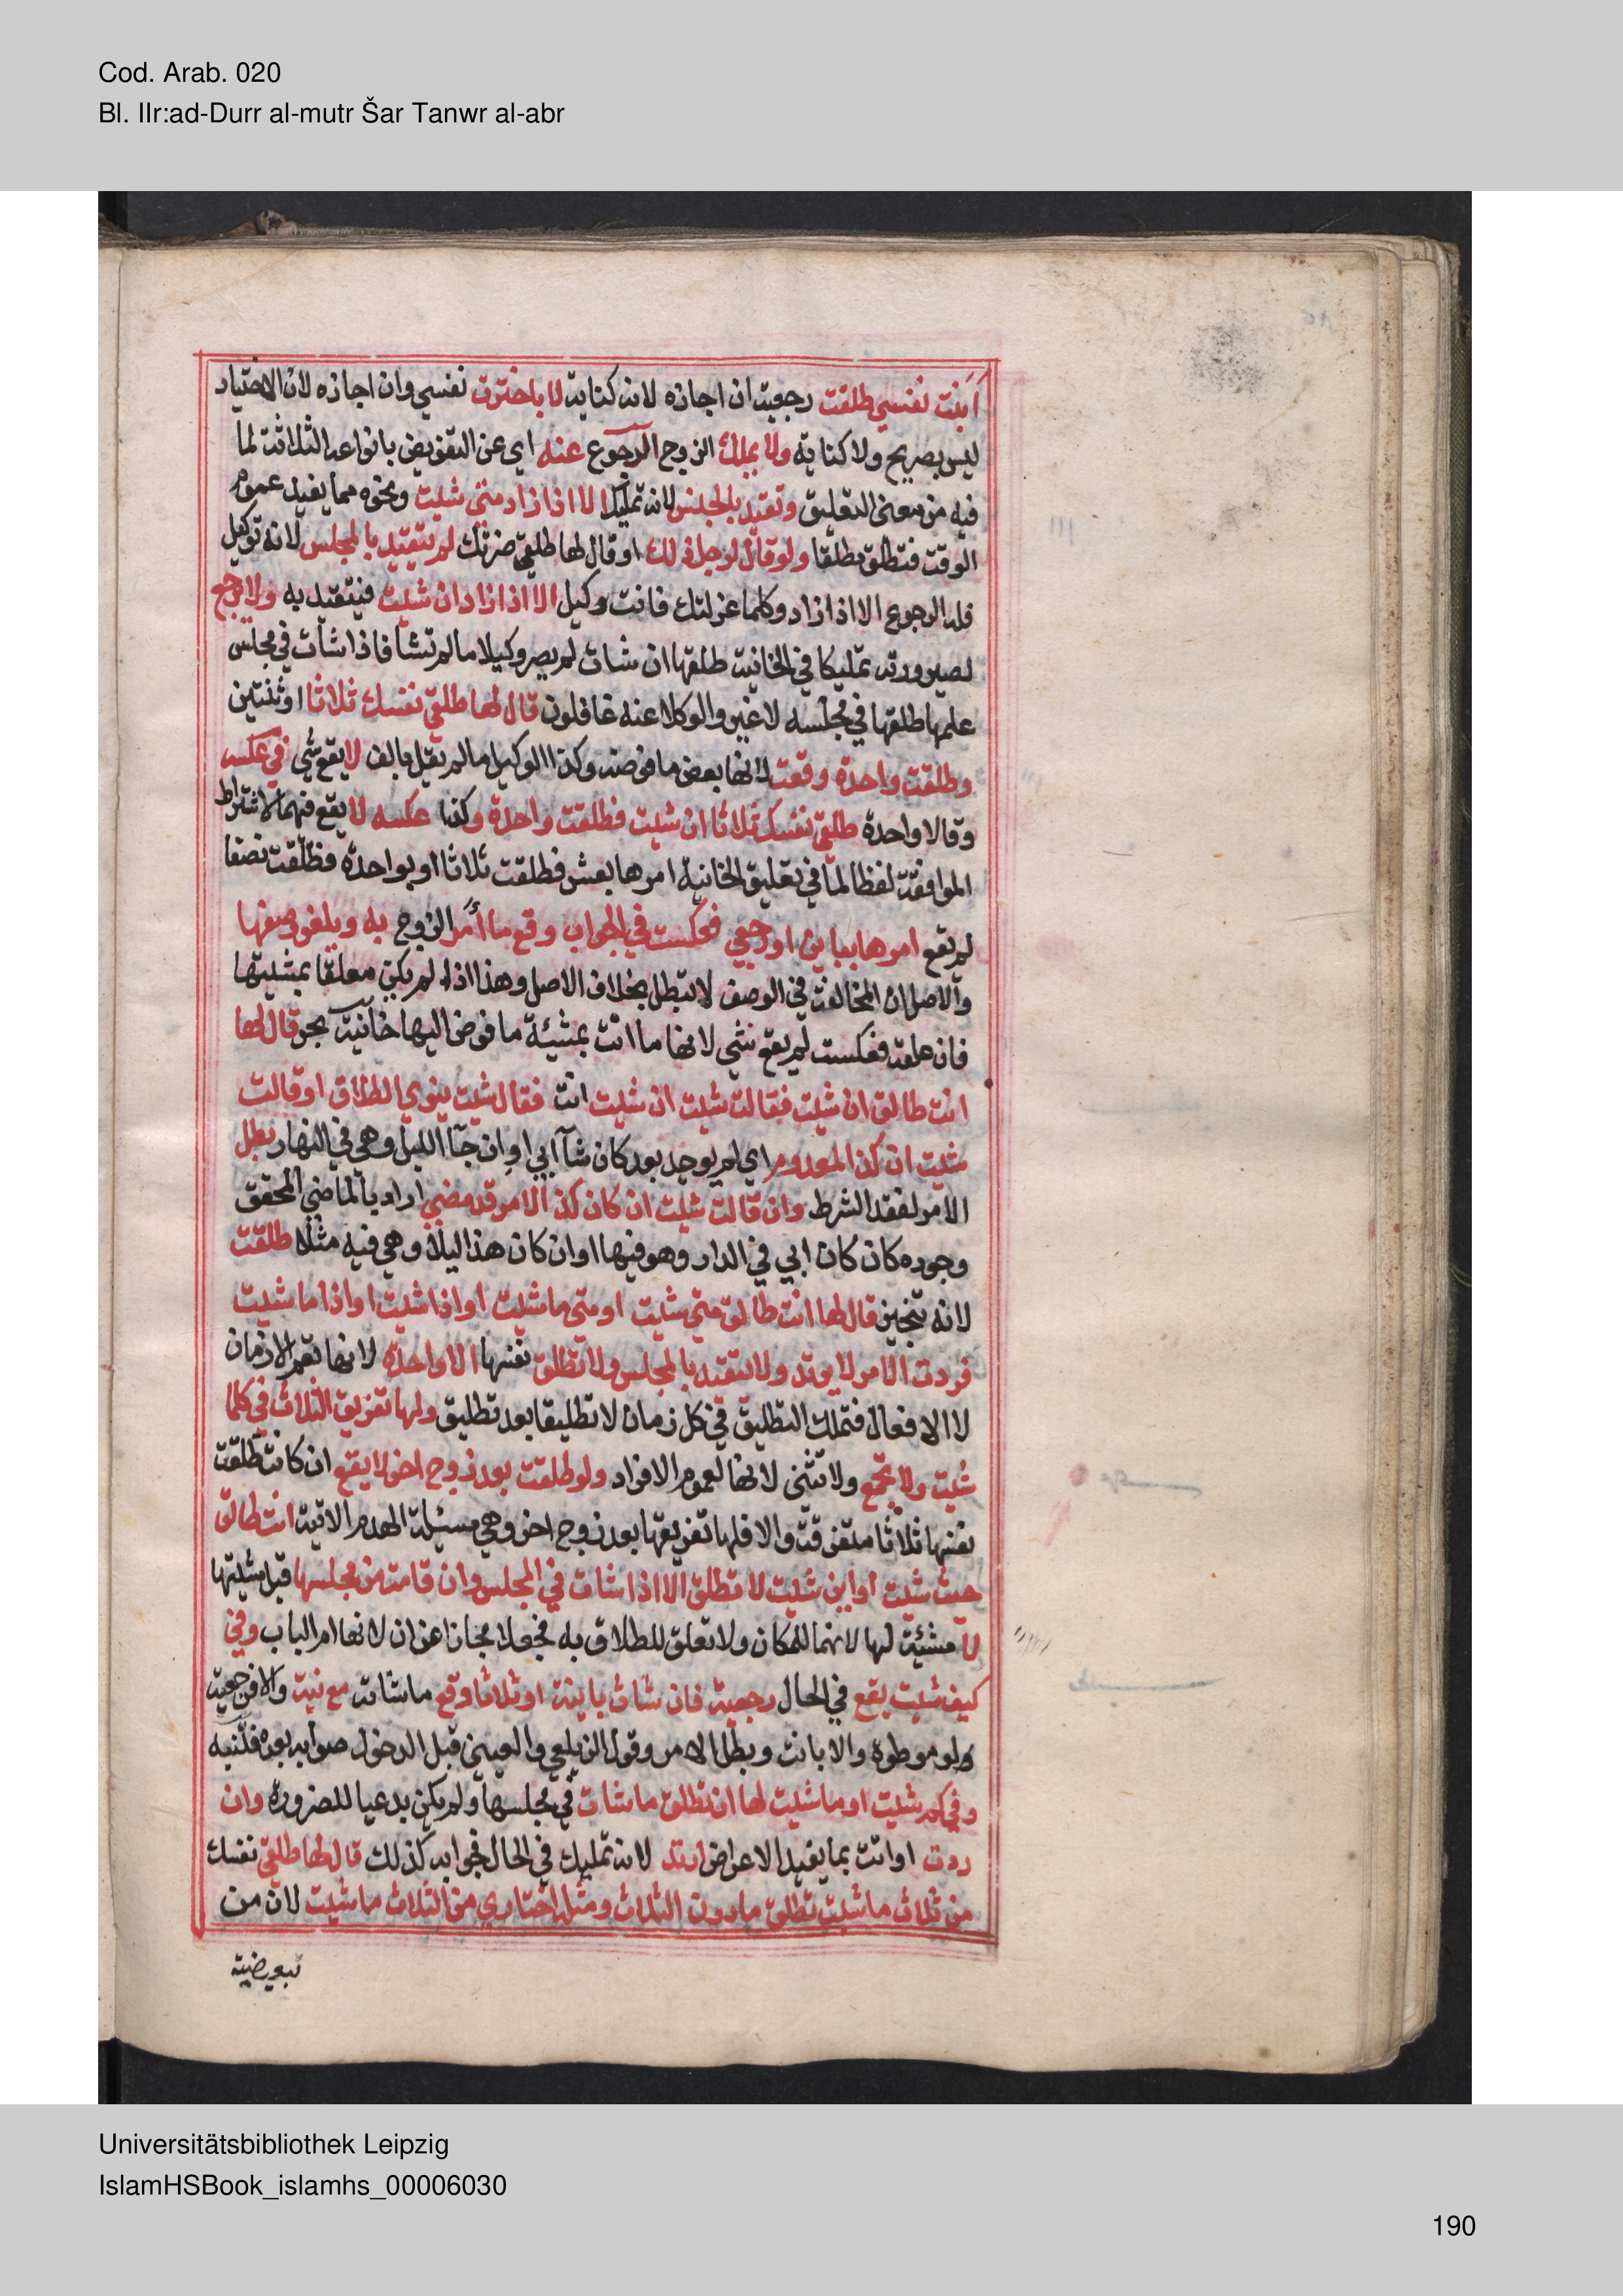 Cod. Arab. 020
Bl. IIr:ad-Durr al-mutr Šar Tanwr al-abr
أبنت نفسي طلقت رجعية ان اجازه لانه كناية لا باخترت نفسي وان اجازه لان الاختيار
ليس بصريح ولا كناية ولا يملك الزوج الرجوع عنه اي عن التفويض بانواعه الثلاثة لما
فيه من معنى التعليق وتقيد بالمجلس لانه تمليك الا اذا زاد متى شئت ونحوه مما يفيد عموم
الوقت فتطلق مطلقا ولو قال لرجل ذلك او قال لها طلقي ضرتك لم يتقيد بالمجلس لانه توكيل
فله الرجوع الا اذا زاد وكلما عزلتك فانت وكيل الا اذا زاد ان شئت فيتقيد به ولا يرجع
لصيرورته تمليكا في الخانية طلقها ان شات لم يصر وكيلا ما لم تشا فاذا شات في مجلس
علمها طلقها في مجلسه لا غير والوكلا عنه غافلون قال لها طلقي نفسك ثلاثا او ثنتين
وطلقت واحدة وقعت لانها بعض ما فوضه وكذا الوكيل ما لم يقل بالف لا يقع شي في عكسه
وقالا واحدة طلقي نفسك ثلاثا ان شئت فطلقت واحدة وكذا عكسه لا يقع فيهما لاشتراط
الموافقة لفظا لما في تعليق الخانية امرها بعشر فطلقت ثلاثا او بواحدة فطلقت نصفا
لم يقع امرها بباين او رجعي فعكست في الجواب وقع ما أمر الزوج به ويلغو وصفها
والاصل ان المخالفة في الوصف لا تبطل بخلاف الاصل وهذا اذا لم يكن معلقا بمشيتها
فان علقه فعكست لم يقع شي لانها ما اتت بمشيئة ما فوض اليها خانية بحر قال لها
انت طالق ان شئت فقالت شئت ان شئت انت فقال شئت ينوي الطلاق او قالت
شئت ان كذا لمعدوم اي لم يوجد بعد كان شآ ابي او ان جآ الليل وهي في النهار بطل
الامر لفقد الشرط وان قالت شئت ان كان كذا الامر قد مضى اراد بالماضي المحقق
وجوده كان كان ابي في الدار وهو فيها او ان كان هذا ليلا وهي فيه مثلا طلقت
لانه تنجيز قال لها انت طالق متى شئت او متى ما شئت او اذا شئت او اذا ما شئت
فردت الامر لا يرتد ولا يتقيد بالمجلس ولا تطلق نفسها الا واحدة لانها تعم الازمان
لا الافعال فتملك التطليق في كل زمان لا تطليقا بعد تطليق ولها تفريق الثلاث في كلما
شئت ولا تجمع ولا تثني لانها لعموم الافراد ولو طلقت بعد زوج اخر لا يقع ان كانت طلقت
نفسها ثلاثا متفرقة والا فلها تفريقها بعد زوج اخر وهي مسئلة الهدم الاتية انت طالق
حيث شئت او اين شئت لا تطلق الا اذا شات في المجلس وان قامت من مجلسها قبل مشيتها
لا مشئية لها لانهما للمكان ولا تعلق للطلاق به فجعلا مجازا عن ان لانها ام الباب وفي
كيف شئت يقع في الحال رجعية فان شات باينة او ثلاثا وقع ما شات مع نية والا فرجعية
ولو موطوة والا بانت وبطل الامر وقول الزيلعي والعيني قبل الدخول صوابه بعده فتنبه
وفي كم شئت او ما شئت لها ان تطلق ما شات في مجلسها ولم يكن بدعيا للضرورة وان
ردت او اتت بما يفيد الاعراض ارتد لانه تمليك في الحال فجوابه كذلك قال لها طلقي نفسك
من ثلاث ما شئت تطلق ما دون الثلاث ومثله اختاري من الثلاث ما شئت لان من
تبعيضية
Universitätsbibliothek Leipzig
IslamHSBook_islamhs_00006030
190